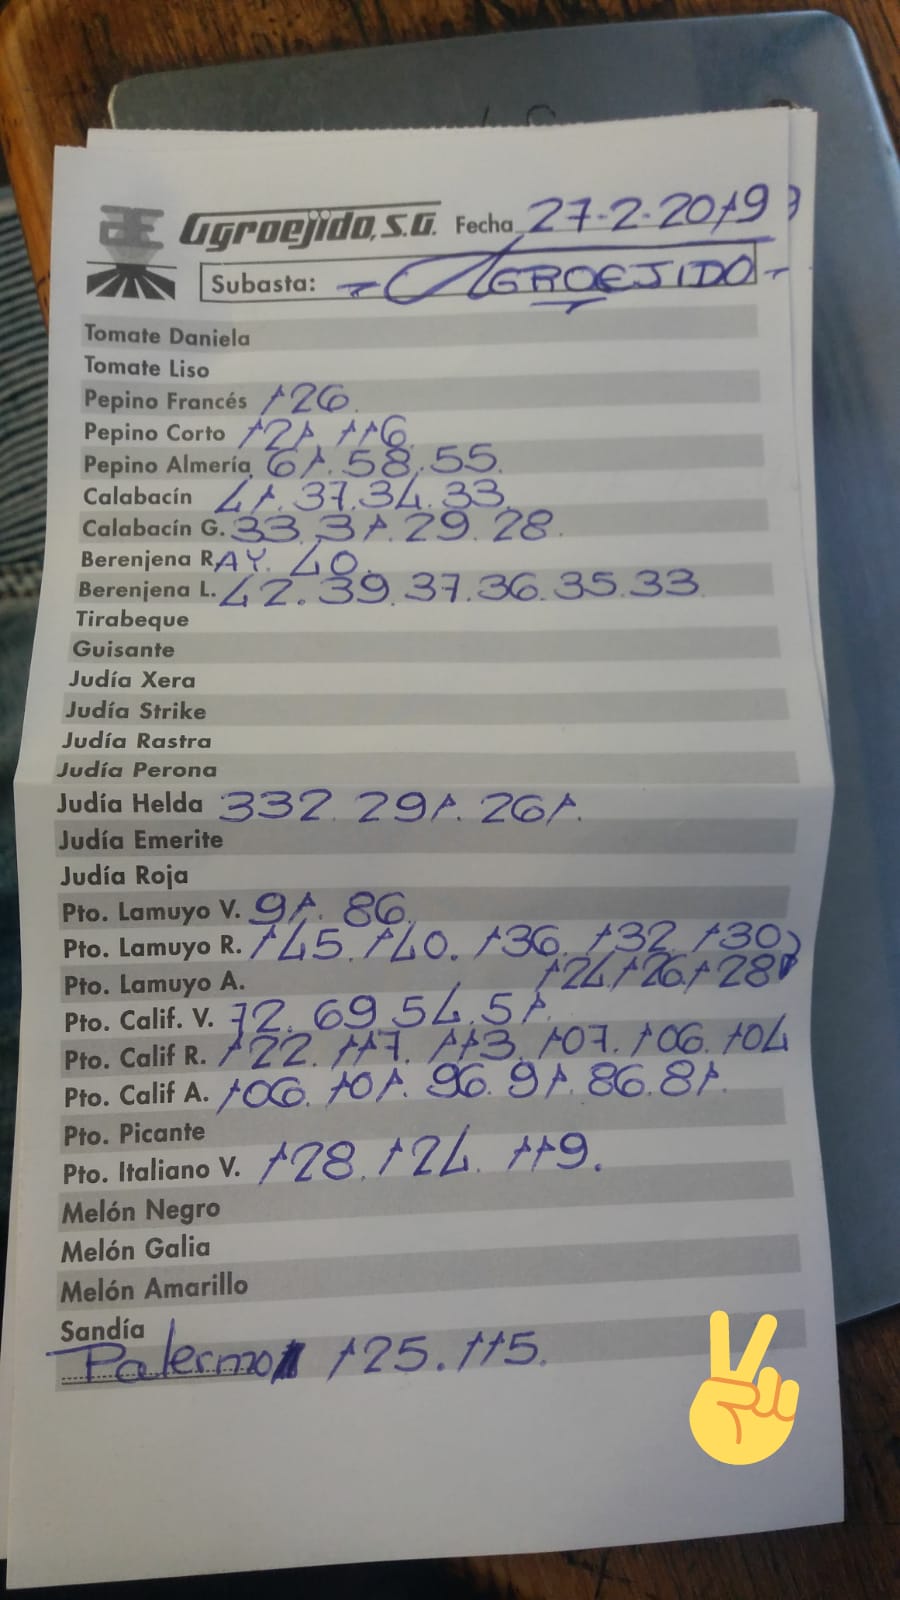 Agroejido, S.A. Fecha 27-2-2019
Subasta: - AGROEJIDO -
Tomate Daniela
Tomate Liso
Pepino Francés 126.
Pepino Corto 121. 116.
Pepino Almería 61. 58. 55.
Calabacín 41. 37. 34. 33.
Calabacín G. 33. 31. 29. 28.
Berenjena RAY. 40.
Berenjena L. 42. 39. 37. 36. 35. 33
Tirabeque
Guisante
Judía Xera
Judía Strike
Judía Rastra
Judía Perona
Judía Helda 332. 291. 261.
Judía Emerite
Judía Roja
Pto. Lamuyo V. 91. 86.
Pto. Lamuyo R. 145. 140. 136. 132. 130
Pto. Lamuyo A. 124. 126. 128
Pto. Calif. V. 72. 69. 54. 51.
Pto. Calif R. 122. 117. 113. 107. 106. 104
Pto. Calif A. 106. 101. 96. 91. 86. 81.
Pto. Picante
Pto. Italiano V. 128. 124. 119.
Melón Negro
Melón Galia
Melón Amarillo
Sandía
Palermo 125. 115.